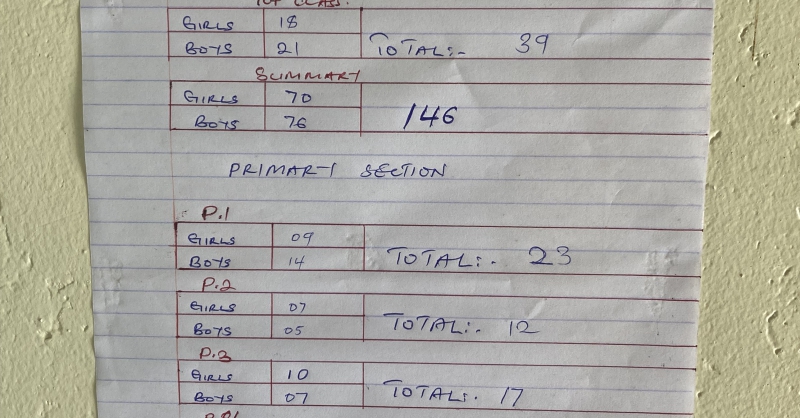 TOP CLASS.
GIRLS 18
BOYS 21 TOTAL:- 39
SUMMARY
GIRLS 70
BOYS 76 146
PRIMARY SECTION
P.1
GIRLS 09
BOYS 14 TOTAL:- 23
P.2
GIRLS 07
BOYS 05 TOTAL:- 12
P.3
GIRLS 10
BOYS 07 TOTAL:- 17